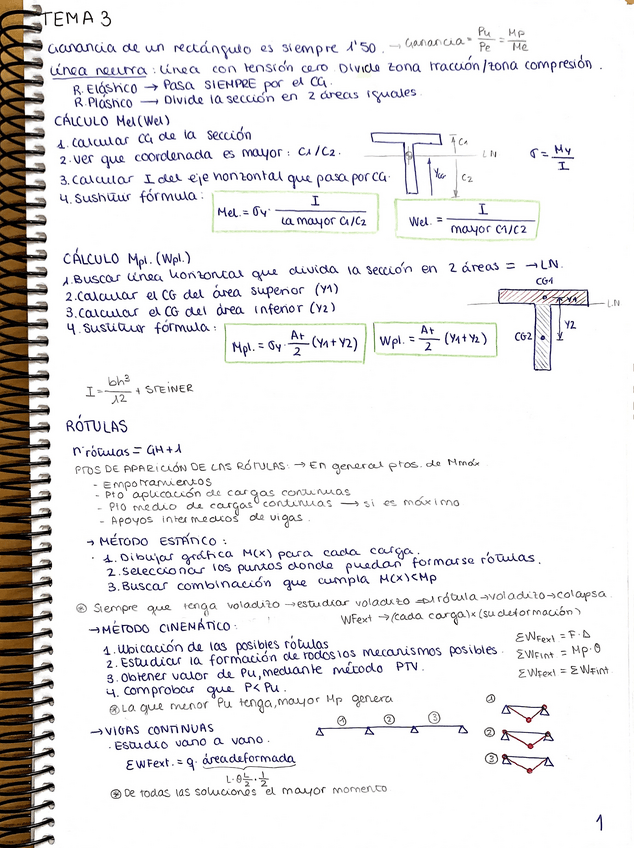 TEMA 3
Ganancia de un rectángulo es siempre 1'50. → Ganancia = Pu/Pe = Mp/Me
Línea neutra: línea con tensión cero Divide zona tracción/zona compresión.
R. Elástico → Pasa SIEMPRE por el CG.
R. Plástico → Divide la sección en 2 áreas iguales.
CÁLCULO Mel (Wel)
1. Calcular CG de la sección
2. Ver que coordenada es mayor: C1/C2.
3. Calcular I del eje horizontal que pasa por CG.
4. Sustituir fórmula:
Mel. = σy · I / La mayor C1/C2
Wel. = I / mayor C1/C2
C1
LN
YCG
C2
σ = My/I
CÁLCULO Mpl. (Wpl.)
1. Buscar línea horizontal que divida la sección en 2 áreas = → LN.
2. Calcular el CG del área superior (Y1)
3. Calcular el CG del área inferior (Y2)
4. Sustituir fórmula:
Mpl. = σy · At/2 (Y1+Y2)
Wpl. = At/2 (Y1+Y2)
CG1
Y1
LN
Y2
CG2
I = bh³/12 + STEINER
RÓTULAS
nº rótulas = GH+1
PTOS DE APARICIÓN DE LAS RÓTULAS: → En general ptos. de Mmáx
- Empotramientos
- Pto aplicación de cargas continuas
- Pto medio de cargas continuas → si es máximo
- Apoyos intermedios de vigas.
→ MÉTODO ESTÁTICO:
1. Dibujar gráfica M(x) para cada carga.
2. Seleccionar los puntos donde puedan formarse rótulas.
3. Buscar combinación que cumpla M(x)<Mp
⊛ Siempre que tenga voladizo → estudiar voladizo → 1 rótula → voladizo → colapsa
WFext → (cada carga) x (su deformación)
→ MÉTODO CINEMÁTICO:
1. Ubicación de las posibles rótulas
2. Estudiar la formación de todos los mecanismos posibles.
3. Obtener valor de Pu, mediante método PTV.
4. Comprobar que P<Pu.
ΣWFext = F·Δ
ΣWFint. = Mp·θ
ΣWFext = ΣWFint.
⊛ La que menor Pu tenga, mayor Mp genera
→ VIGAS CONTINUAS
· Estudio vano a vano.
ΣWFext. = q · área deformada
L·θL/2 · 1/2
① ② ③
①
②
③
⊛ De todas las soluciones el mayor momento
1